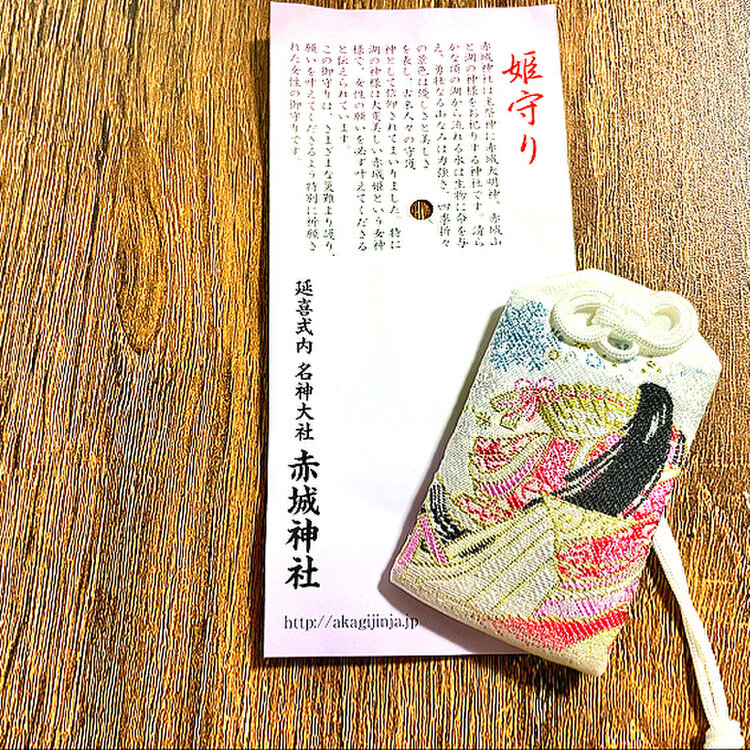 姫守り
赤城神社は主祭神に赤城大明神、赤城山
と湖の神様をお祀りする神社です。清ら
かな頂の湖から流れる水は生物に命を与
え、勇壮なる山なみは力強さ、四季折々
の景色は優しさと美しさ
を表し、古来人々の守護
神として信仰されてまいりました。特に
湖の神様は大変美しい赤城姫という女神
様で、女性の願いを必ず叶えてくださる
と伝えられています。
この御守りは、さまざまな災難より護り、
願いを叶えてくださるよう特別に祈願さ
れた女性の御守りです。
延喜式内 名神大社 赤城神社
http://akagijinja.jp